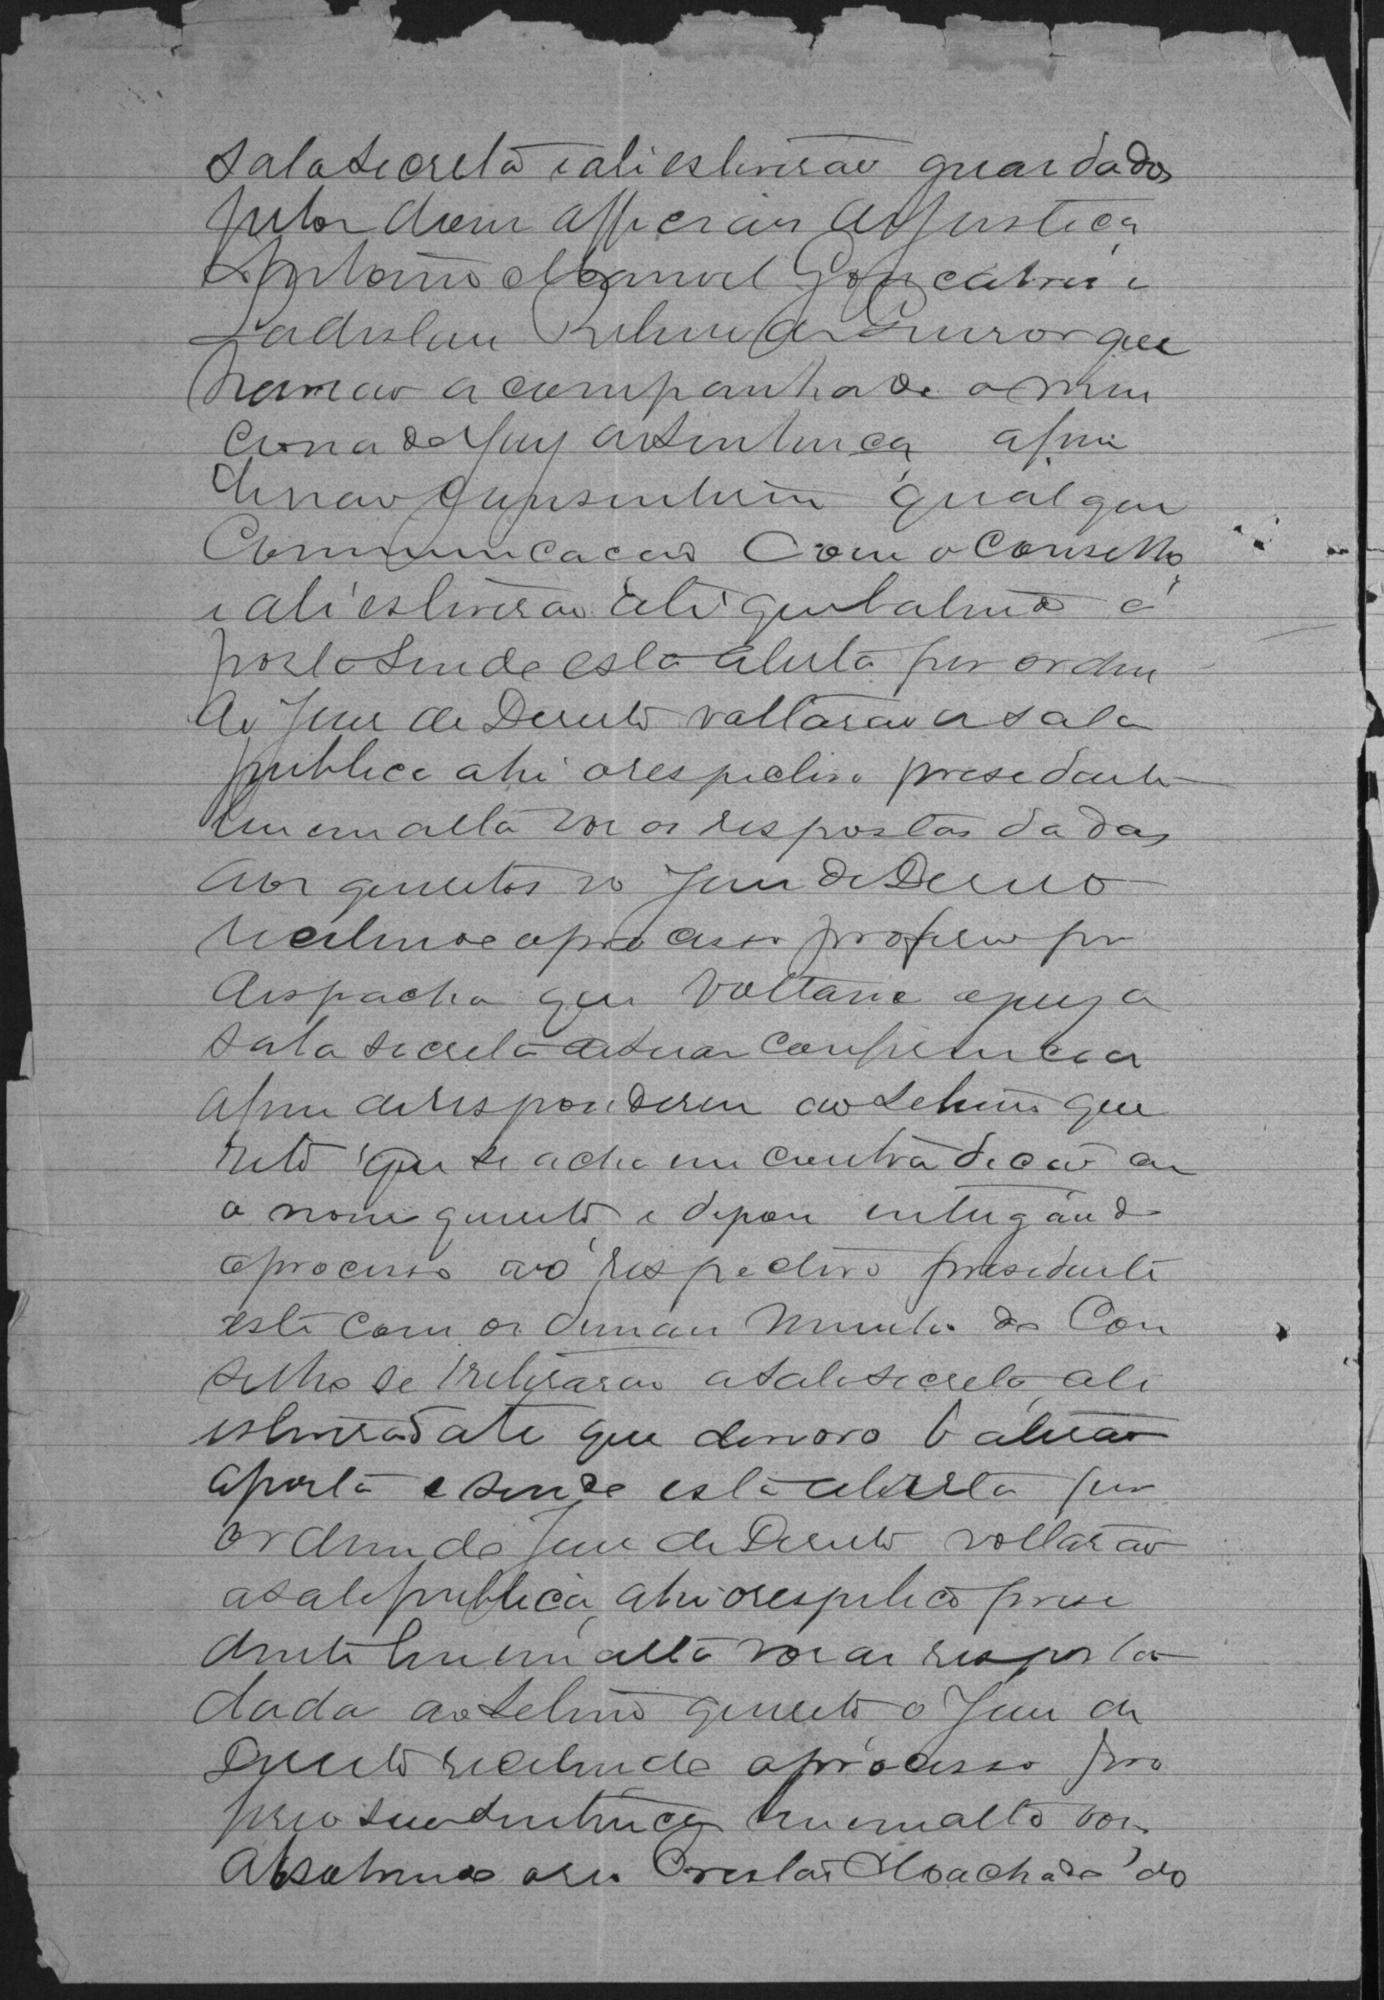 sala secreta e ali estiverão guardados
pelos dous officiais de Justiça
Antonio Manoel Gonçalves e
Ladislau Ribeiro de que
havião acompanhado o men
cionado Juy a sentença afim
de não consentirem qualquer
Comunicacão Com o Conselho
e ali estiverão até que baterão a
porta sendo esta aberta por ordem
do Juis de Dereito voltarão a sala
publica ahi o respectivo presedente
leu em alta vos as respostas dadas
aos quesitos e o Juis de Dereito
recebendo o processo proferio por
despacho que voltasse o jury a
sala secreta de suas Conferencia
afim de responderem ao setimo que
sito que se acha em contradicão com
o nono quesito, e depois entregando
o processo ao respectivo presidente
este com os demais membros do Con
selho se retirarão a sala secreta, ali
estiverão até que de novo baterão
a porta e sendo esta aberta por
ordem do Juis de Dereito voltarão
a sala publica, ahi o respectivo prese
dente leu em alta vos as resposta
dada ao setimo quesito o Juis de
Dereito recebendo o processo pro
ferio sua sentença leu em alta vos
Absolvendo o reu Machado do